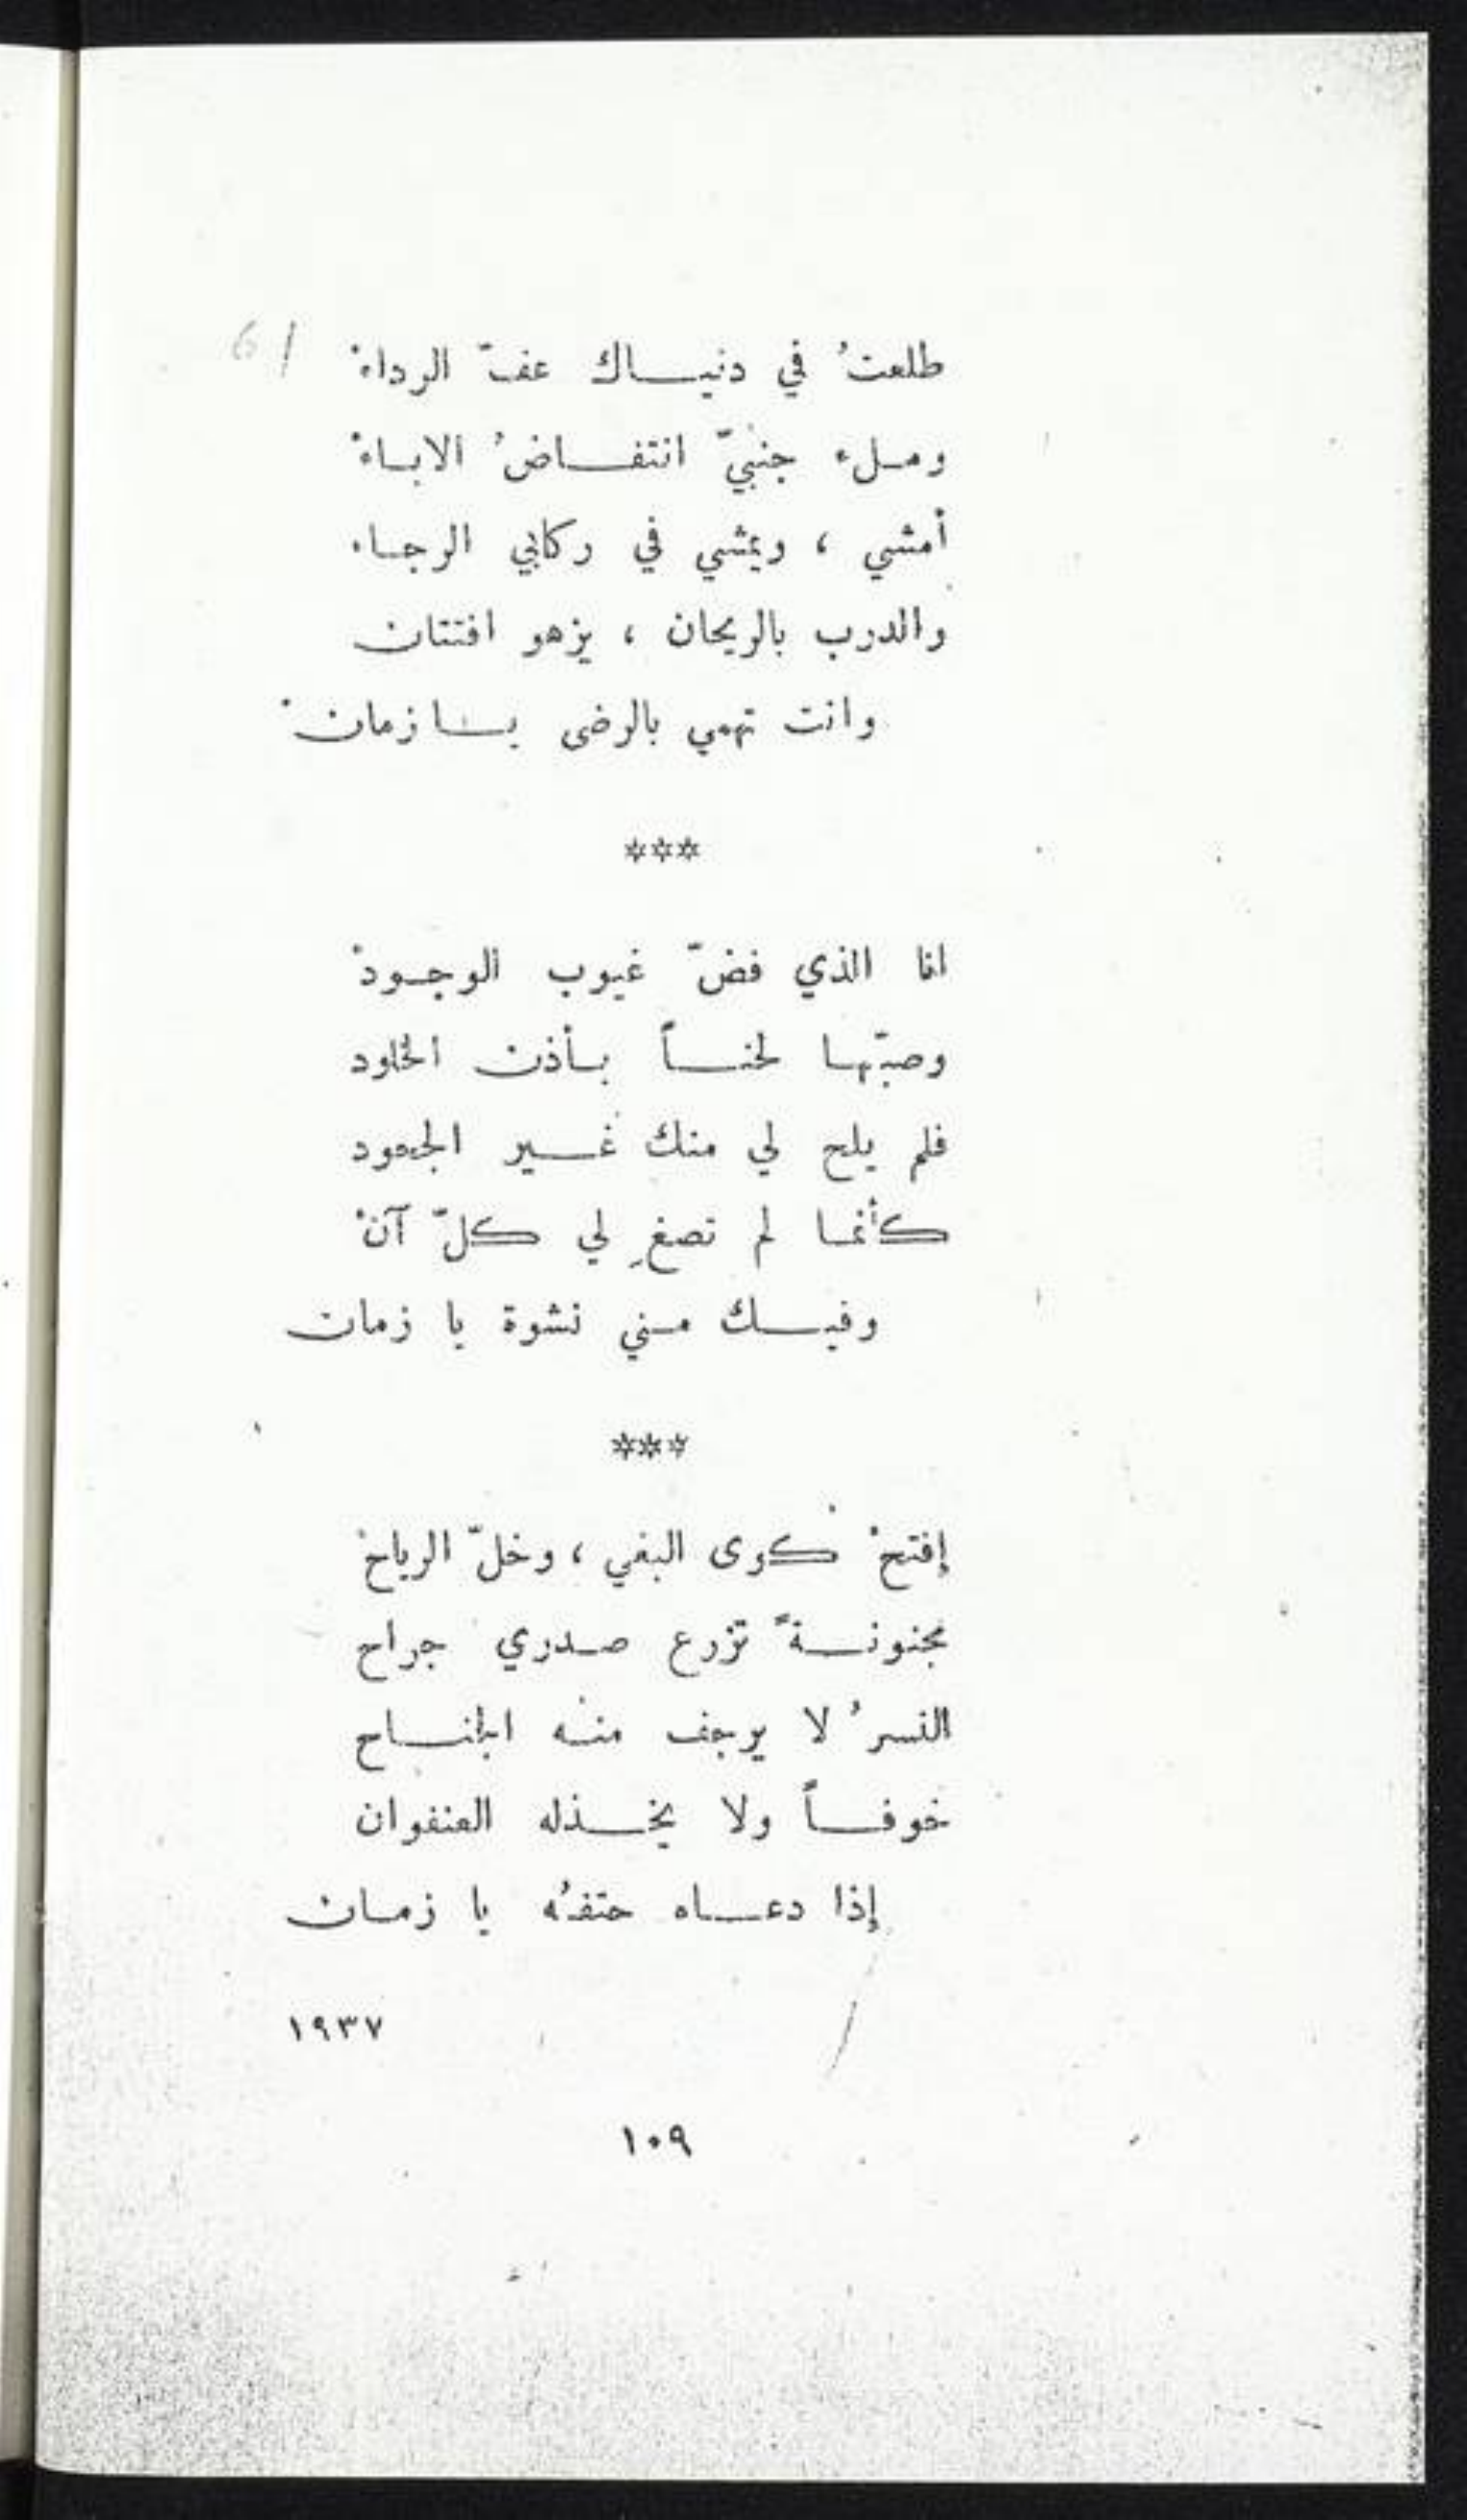 طلعتُ في دنيـــاك عفّ الرداءْ
ومــلء جنبيّ انتفـــاضُ الابــاءْ
أمشي ، ويمشي في ركابي الرجــاء
والدرب بالريحان ، يزهو افتتان
وانت تهمي بالرضى يـــا زمانْ
***
انا الذي فضّ غيوب الوجــودْ
وصبّهــا لحنـــاً بــأذن الخلود
فلم يلح لي منك غـــير الجحود
كأنمــا لم تصغِ لي كلّ آنْ
وفيـــك مــني نشوة يا زمان
***
إفتحْ كوى البغي ، وخلّ الرياحْ
مجنونـــةً تزرع صــدري جراح
النسرُ لا يرجف منــه الجنـــاح
خوفـــاً ولا يخـــذله العنفوان
إذا دعـــاه حتفُه يا زمــان
١٩٣٧
١٠٩